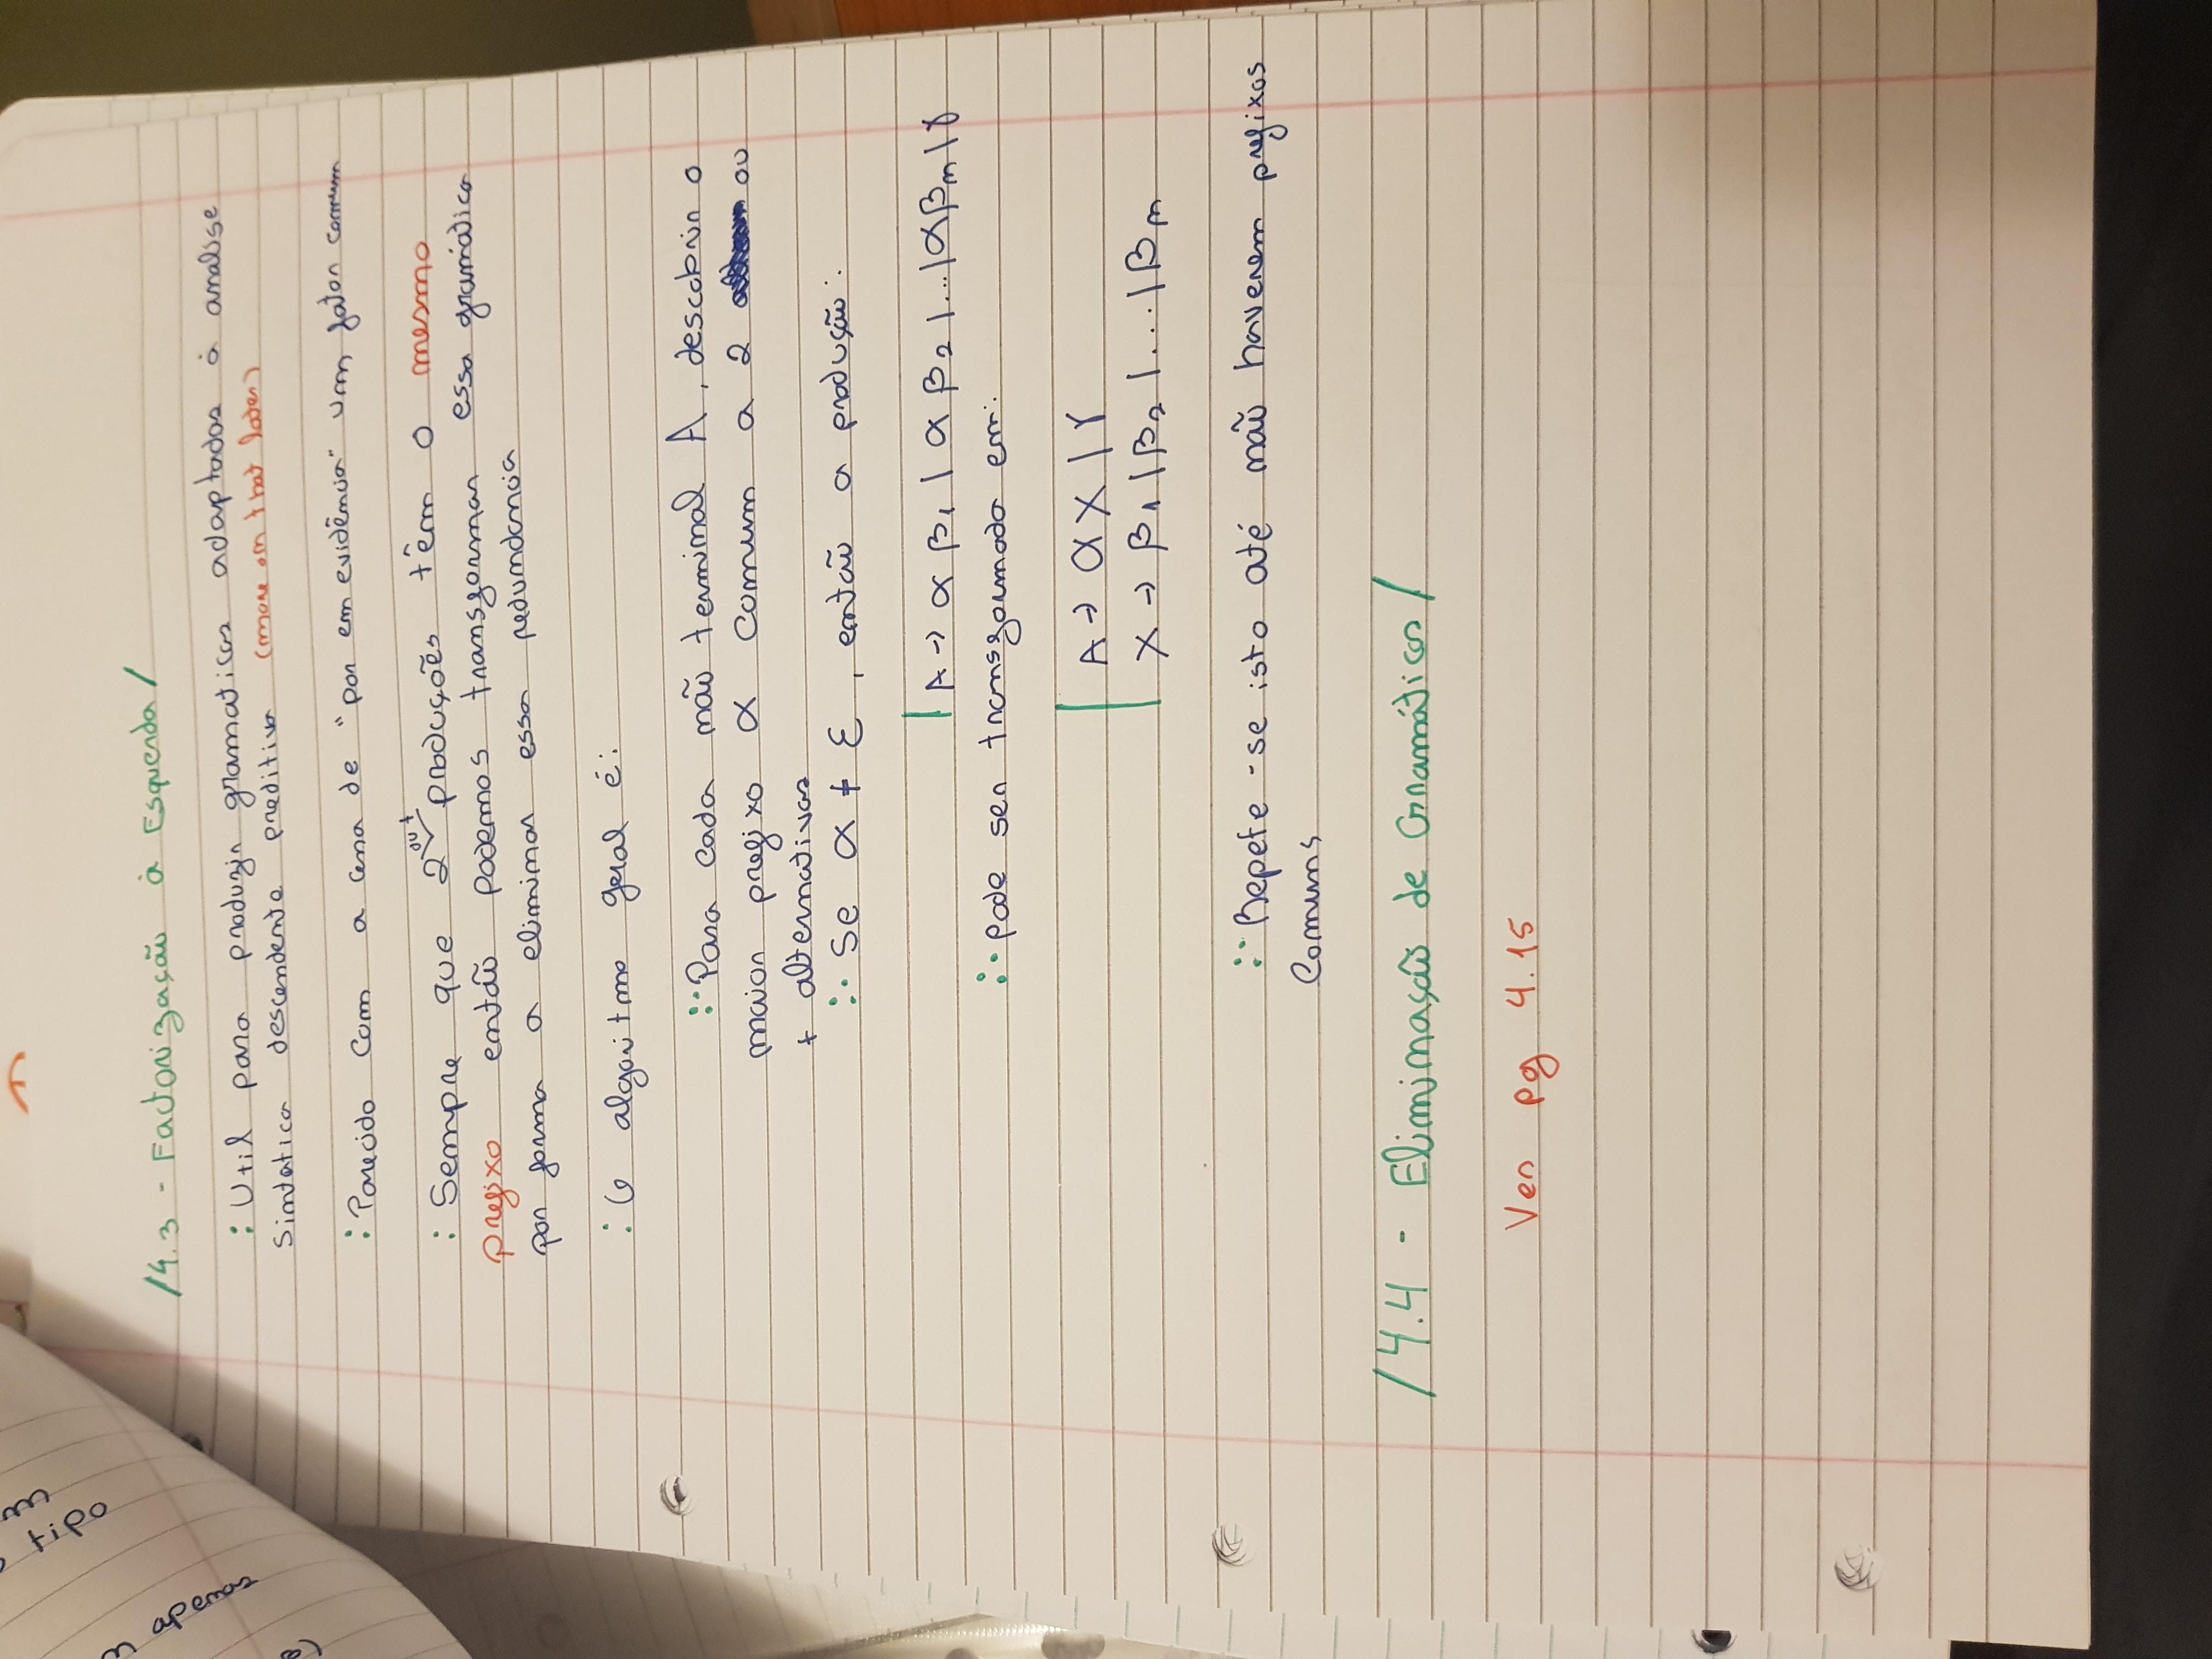 tipo
apenas
/4.3 - Factorização à Esquerda/
: Util para produzir gramaticas adaptadas à analise
sintatica descendente preditiva (more on that later)
: Parecido com a cena de "por em evidência" um fator comum
: Sempre que 2 ou + produções têm o mesmo
prefixo então podemos transformar essa gramática
por forma a eliminar essa redundancia
: O algoritmo geral é:
:· Para cada não terminal A, descobrir o
maior prefixo α comum a 2 ou
+ alternativas
:· Se α ≠ ε, então a produção:
| A → α β₁ | α β₂ |...| α βₙ | γ
:· pode ser transformada em:
A → α X | γ
X → β₁ | β₂ |...| βₙ
:· Repete-se isto até não haverem prefixos
comuns
/4.4 - Eliminação de Gramáticas/
Ver pg 4.15